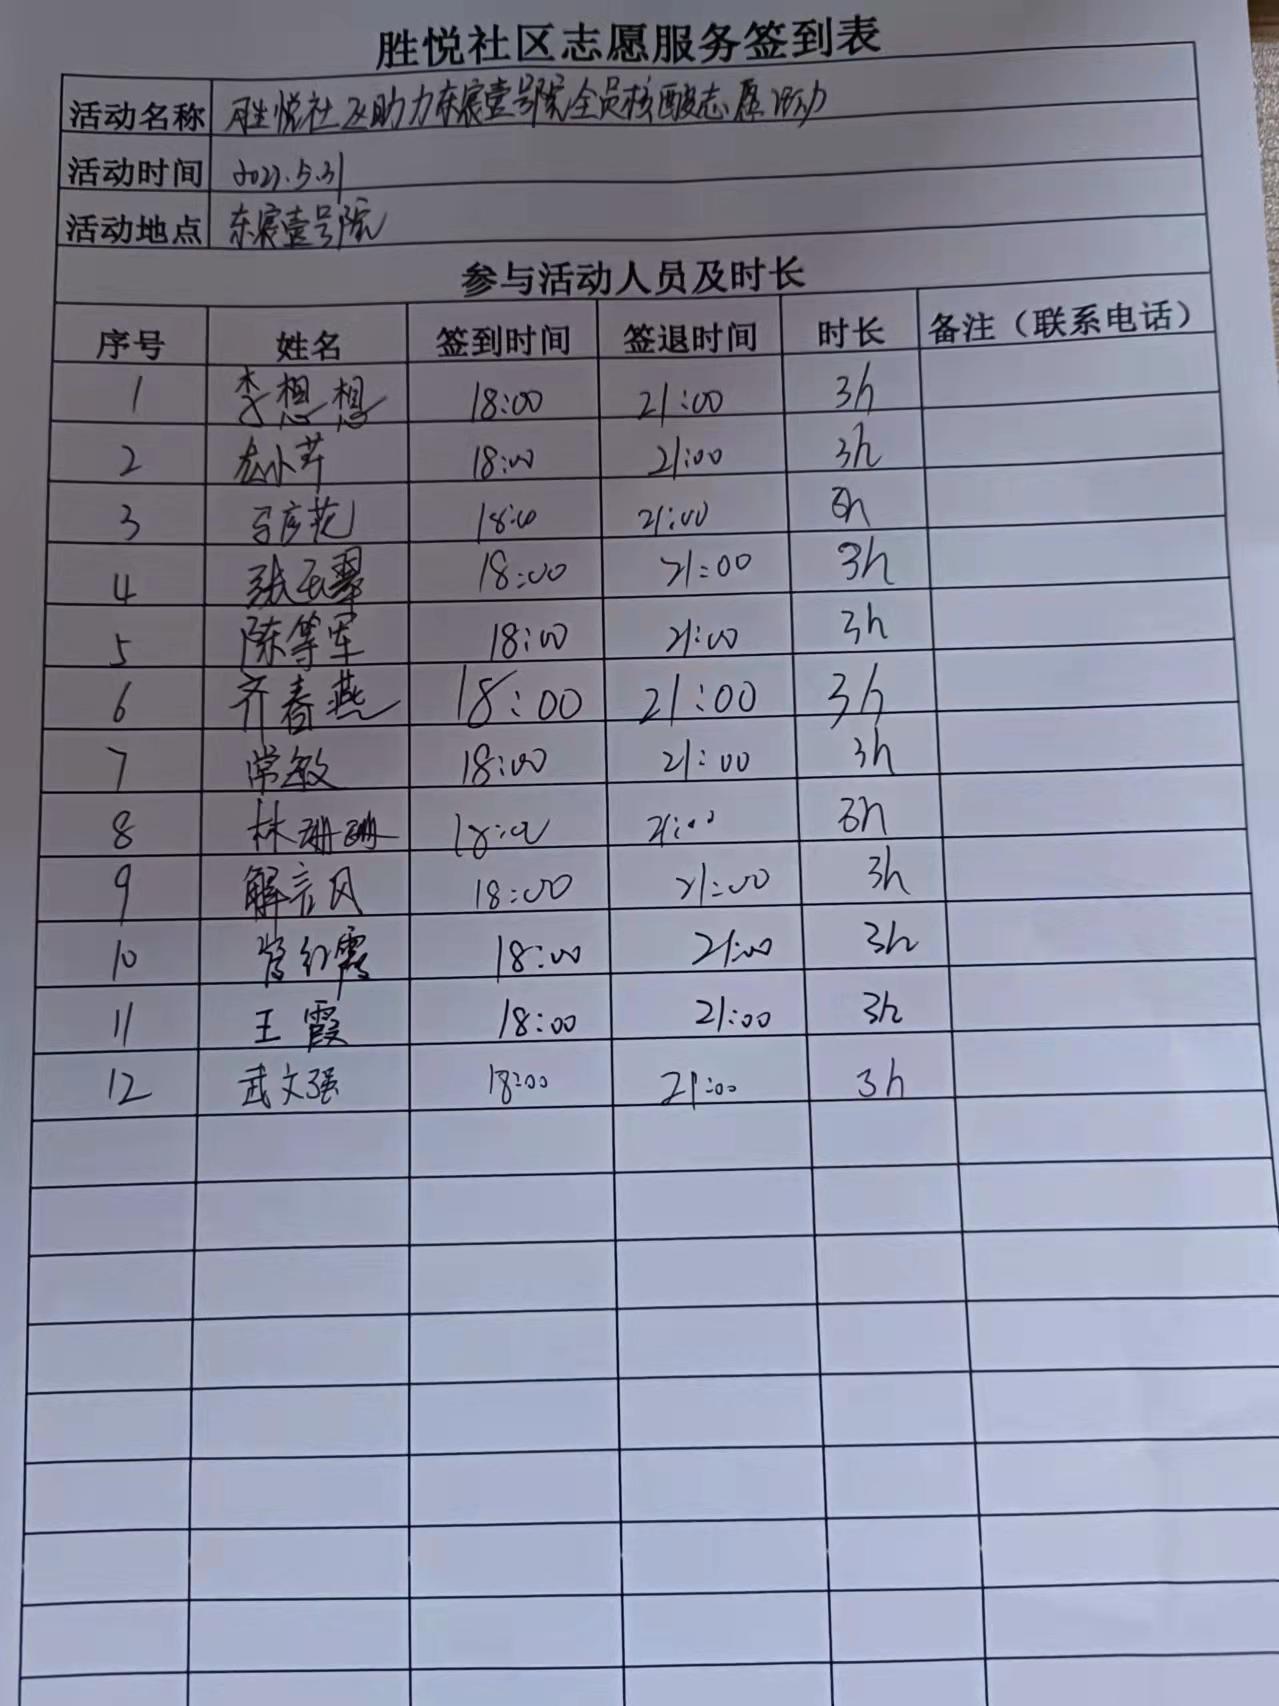 胜悦社区志愿服务签到表
活动名称 胜悦社区助力东宸壹号院全员核酸志愿活动
活动时间 2022.5.31
活动地点 东宸壹号院
参与活动人员及时长
序号 姓名 签到时间 签退时间 时长 备注（联系电话）
1 李想想 18:00 21:00 3h
2 18:00 21:00 3h
3 18:00 21:00 3h
4 张玉翠 18:00 21:00 3h
5 陈等军 18:00 21:00 3h
6 齐春燕 18:00 21:00 3h
7 常敏 18:00 21:00 3h
8 林珊珊 18:00 21:00 3h
9 解言风 18:00 21:00 3h
10 红霞 18:00 21:00 3h
11 王霞 18:00 21:00 3h
12 武文强 18:00 21:00 3h